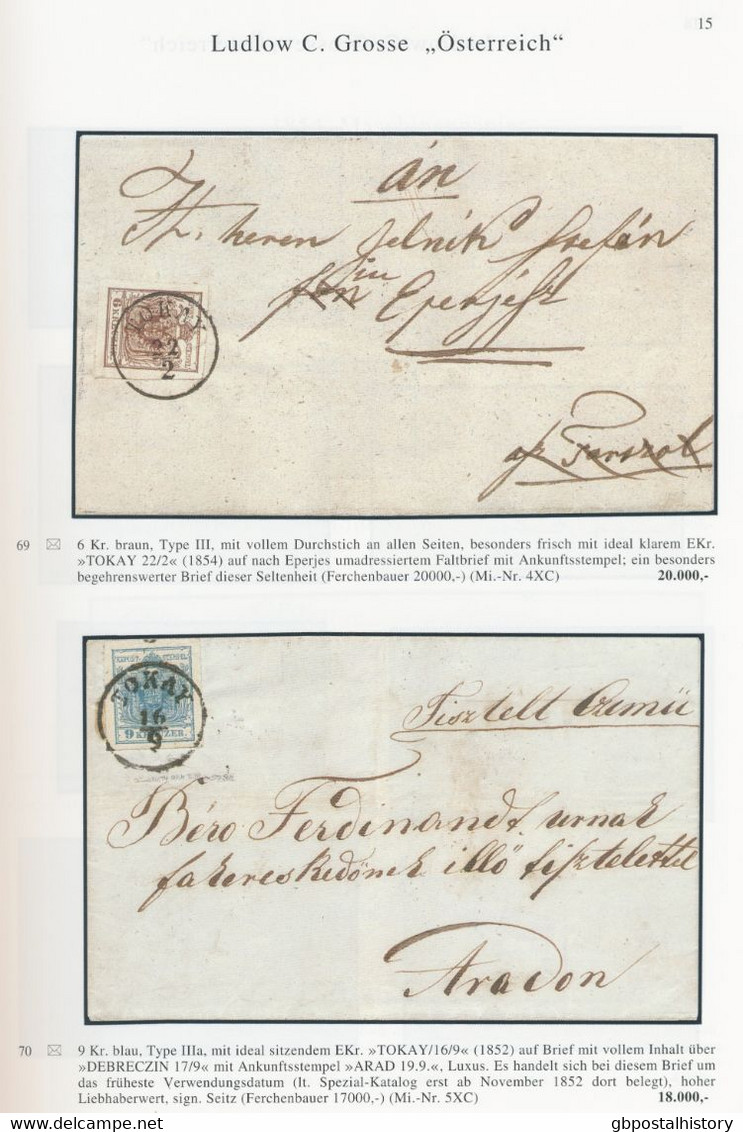 15
Ludlow C. Grosse „Österreich“
án
heren Jelnik
in
Eperjest
TOKAY
22
2
69 6 Kr. braun, Type III, mit vollem Durchstich an allen Seiten, besonders frisch mit ideal klarem EKr.
»TOKAY 22/2« (1854) auf nach Eperjes umadressiertem Faltbrief mit Ankunftsstempel; ein besonders
begehrenswerter Brief dieser Seltenheit (Ferchenbauer 20000,-) (Mi.-Nr. 4XC) 20.000,-
TOKAY
16
9
9 KREUZER
Tisztelt Czimü
Béro Ferdinandt urnak
fakereskedőnek illő tisztelettel
Aradon
70 9 Kr. blau, Type IIIa, mit ideal sitzendem EKr. »TOKAY/16/9« (1852) auf Brief mit vollem Inhalt über
»DEBRECZIN 17/9« mit Ankunftsstempel »ARAD 19.9.«, Luxus. Es handelt sich bei diesem Brief um
das früheste Verwendungsdatum (lt. Spezial-Katalog erst ab November 1852 dort belegt), hoher
Liebhaberwert, sign. Seitz (Ferchenbauer 17000,-) (Mi.-Nr. 5XC) 18.000,-
gbpostalhistory